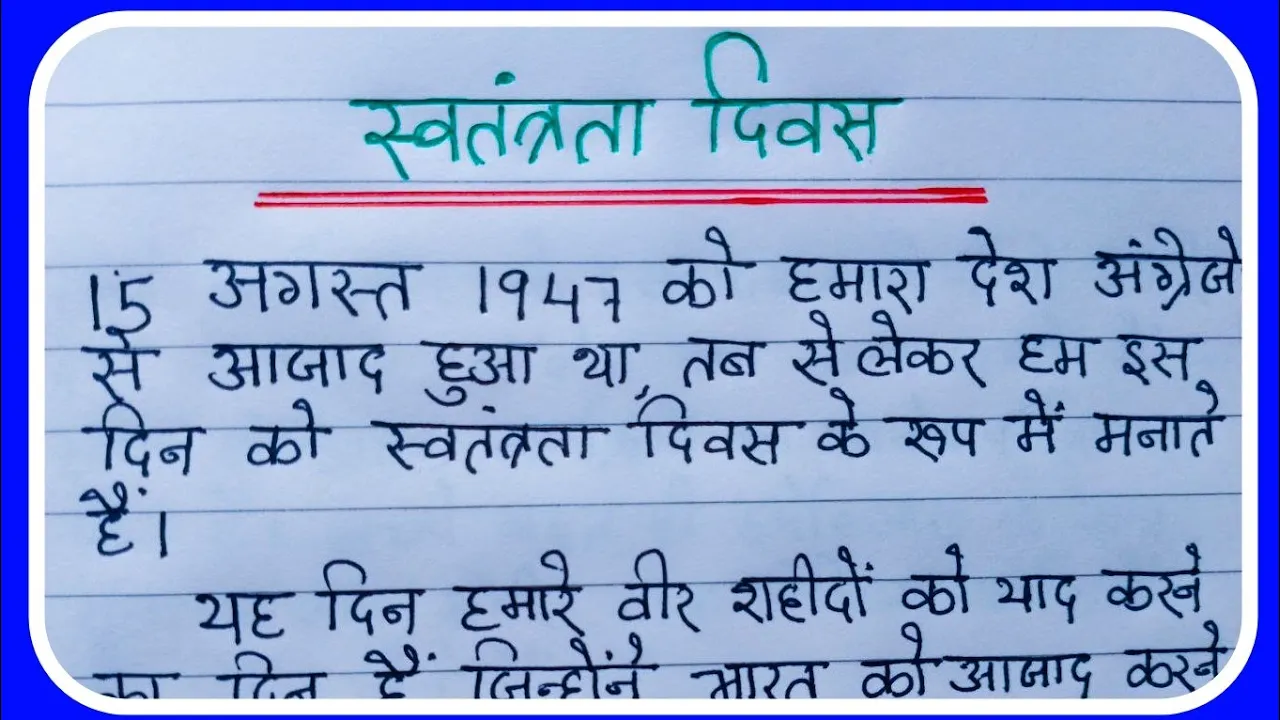 स्वतंत्रता दिवस
15 अगस्त 1947 को हमारा देश अंग्रेजे
से आजाद हुआ था, तब से लेकर हम इस
दिन को स्वतंत्रता दिवस के रूप में मनाते
हैं।
यह दिन हमारे वीर शहीदों को याद करने
का दिन हैं जिन्होंने भारत को आजाद करने